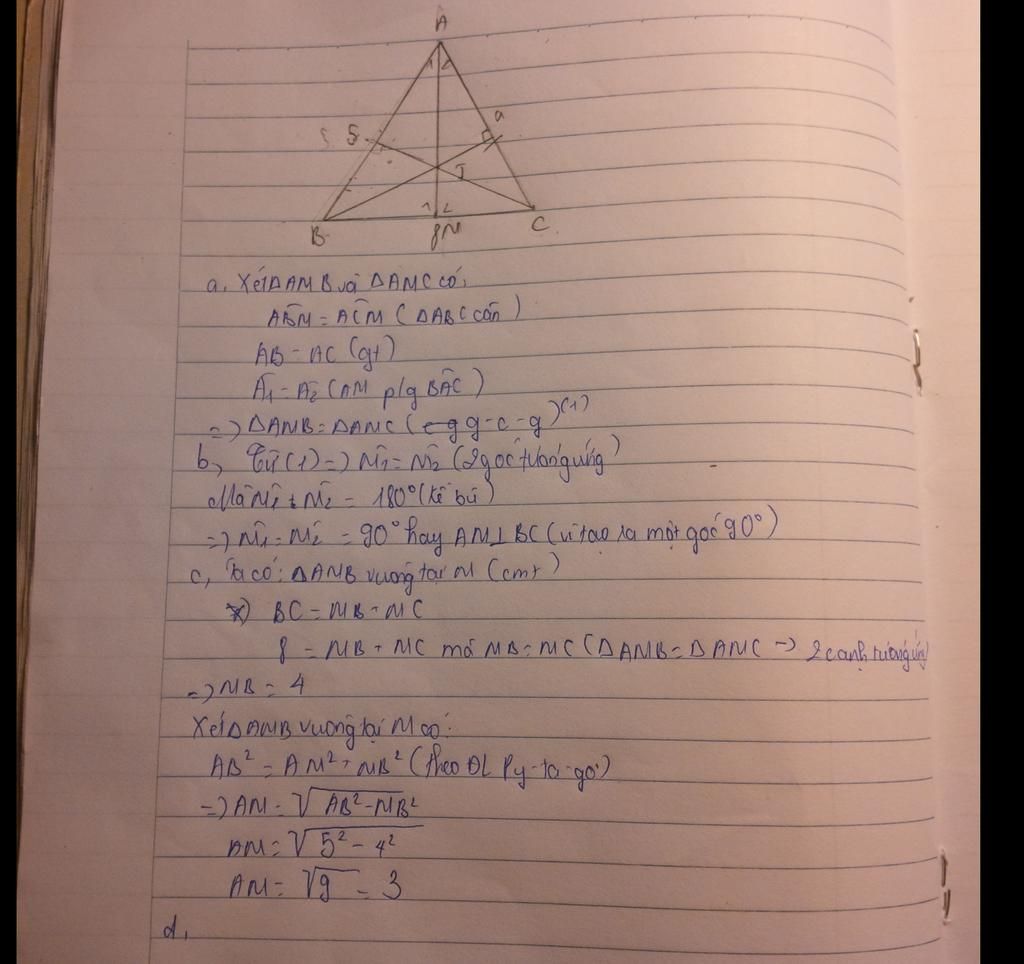 A
1 2
a
5
I
1 2
B
8 M
C
a, Xét ΔAMB và ΔAMC có:
AB̂M = AĈM (ΔABC cân)
AB = AC (gt)
Â1 = Â2 (AM p/g BÂC)
=> ΔAMB = ΔAMC (g-c-g) (1)
b, Từ (1) => M̂1 = M̂2 (2 góc tương ứng)
Mà M̂1 + M̂2 = 180° (kề bù)
=> M̂1 = M̂2 = 90° hay AM⊥BC (vì tạo ra một góc 90°)
c, Ta có: ΔAMB vuông tại M (cmt)
*) BC = MB + MC
8 = MB + MC mà MB = MC (ΔAMB = ΔAMC -> 2 cạnh tương ứng)
=> MB = 4
Xét ΔAMB vuông tại M có:
AB² = AM² + MB² (theo ĐL Py-ta-go)
=> AM = √AB² - MB²
AM = √5² - 4²
AM = √9 = 3
d,